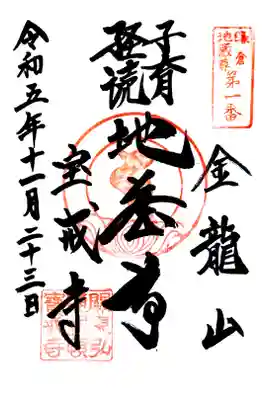 鎌倉
地蔵尊
第一番
金龍山
子育
経読
地蔵尊
宝戒寺
令和五年十一月二十三日